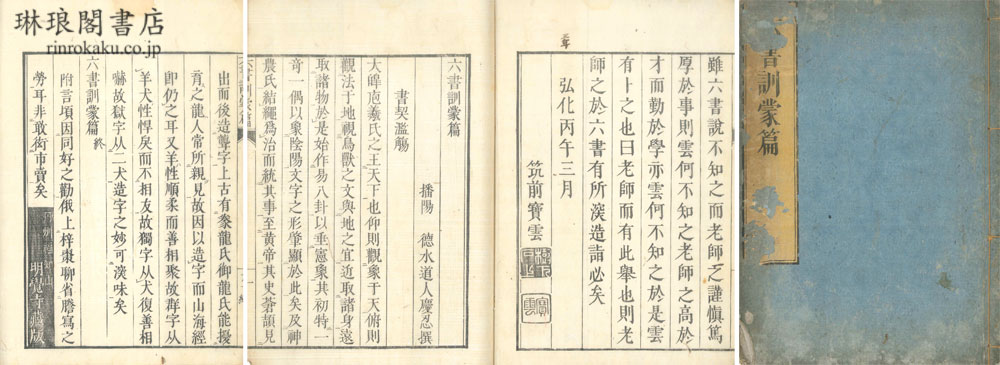 琳琅閣書店
rinrokaku.co.jp
書訓蒙篇
雖六書說不知之而老師之謹慎篤
厚於事則雲何不知之老師之高於
才而勤於學亦雲何不知之於是雲
有卜之也曰老師而有此舉也則老
師之於六書有所深造請必矣
弘化丙午三月
筑前寶雲
六書訓蒙篇
播陽 德水道人慶忍撰
書契濫觴
大皡庖羲氏之王天下也仰則觀象于天俯則
觀法于地視鳥獸之文與地之宜近取諸身遠
取諸物於是始作易八卦以垂憲象其初特一
奇一偶以象陰陽文字之形肇顯於此矣及神
農氏結繩爲治而統其事至黃帝其史蒼頡見
出而後造字上古有豢龍氏御龍氏能擾
育之龍人常所親見故因以造字而山海經
卽仍之耳又羊性順柔而善相聚故群字从
羊犬性悍戾而不相友故獨字从犬復善相
嚇故獄字从二犬造字之妙可深味矣
六書訓蒙篇 終
附言頃因同好之勸俄上梓棗聊省謄寫之
勞耳非敢衒市賣矣
明覺寺藏版